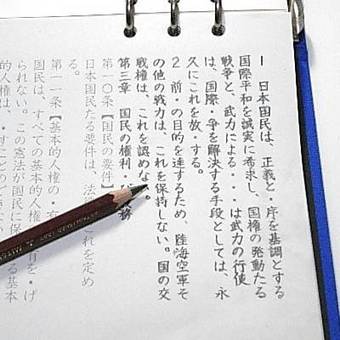 1　日本国民は、正義と・序を基調とする
国際平和を誠実に希求し、国権の発動たる
戦争と、武力による・・・は武力の行使
は、国際・争を解決する手段としては、永
久にこれを放・する。
2　前・の目的を達するため、陸海空軍そ
の他の戦力は、これを保持しない。国の交
戦権は、これを認めな
第三章　国民の権利・務
第一〇条【国民の要件】
日本国民たる要件は、法これを定め
第一一条【基本的人権の・
国民は、すべての基本的人権有を・げ
られない。この憲法が国民に保
的人権は、